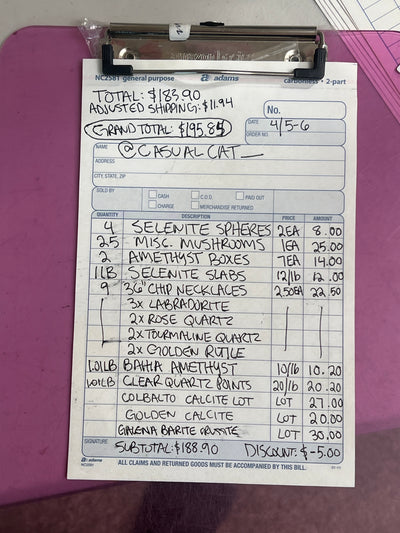 NC2581 general purpose adams carbonless • 2-part
TOTAL: $183.90
ADJUSTED SHIPPING: $11.94
GRAND TOTAL: $195.85
No.
DATE 4/5-6
ORDER NO.
NAME @CASUALCAT_
ADDRESS
CITY, STATE, ZIP
SOLD BY CASH C.O.D. PAID OUT
CHARGE MERCHANDISE RETURNED
QUANTITY DESCRIPTION PRICE AMOUNT
4 SELENITE SPHERES 2EA 8.00
25 MISC. MUSHROOMS 1EA 25.00
2 AMETHYST BOXES 7EA 14.00
1LB SELENITE SLABS 12/lb 12.00
9 36" CHIP NECKLACES 2.50EA 22.50
3x LABRADORITE
2x ROSE QUARTZ
2x TOURMALINE QUARTZ
2x GOLDEN RUTILE
1.01LB BAHIA AMETHYST 10/lb 10.20
1.01LB CLEAR QUARTZ POINTS 20/lb 20.20
COLBALTO CALCITE LOT LOT 27.00
GOLDEN CALCITE LOT 20.00
GALENA BARITE LOT 30.00
SIGNATURE SUBTOTAL: $188.90 DISCOUNT: $-5.00
adams
NC2581 ALL CLAIMS AND RETURNED GOODS MUST BE ACCOMPANIED BY THIS BILL.